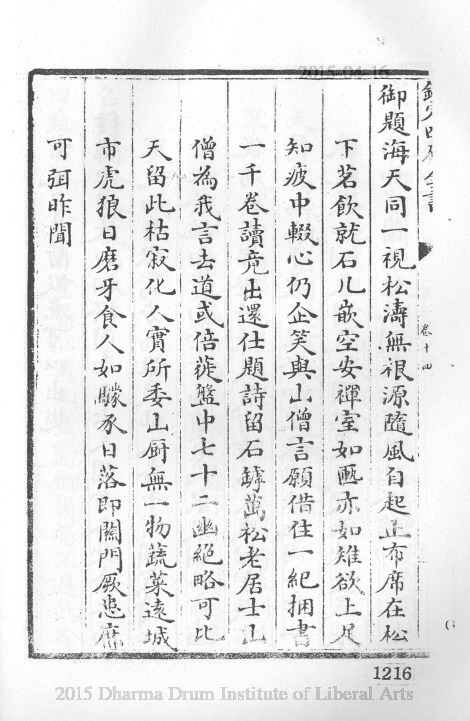 2015-04-16
欽定四庫全書
卷十四
御題海天同一視松濤無根源隨風自起止布席在松
下茗飲就石几嵌空安禪室如甌亦如雉欲上足
知疲中輟心仍企笑與山僧言願借住一紀捆書
一千卷讀竟出還仕題詩留石罅萬松老居士山
僧為我言去道或倍蓰盤中七十二幽絕略可比
天留此枯寂化人實所委山厨無一物蔬菜遠城
市虎狼日磨牙食人如驐豕日落即關門厥患庶
可弭昨聞
1216
2015 Dharma Drum Institute of Liberal Arts